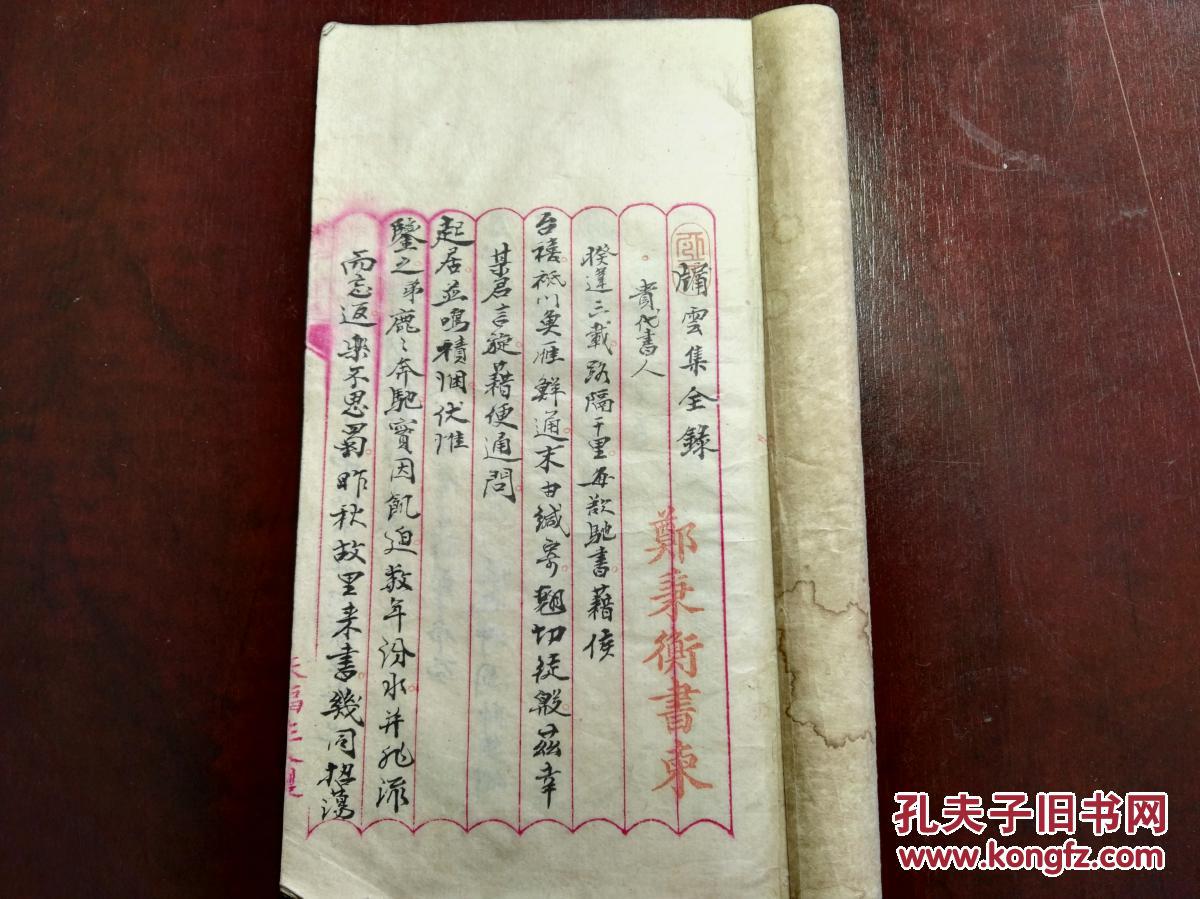 牖雲集全錄
鄭秉衡書柬
代書人
睽違三載路隔千里每欲馳書藉候
台禧祗以魚雁鮮通末由緘寄翹切徒殷茲幸
某君言旋藉便通問
起居並鳴積悃伏惟
鑒之弟鹿〻奔馳實因飢迫数年汾水并非流
而忘返樂不思蜀昨秋故里来書幾同招
孔夫子旧书网
www.kongfz.com